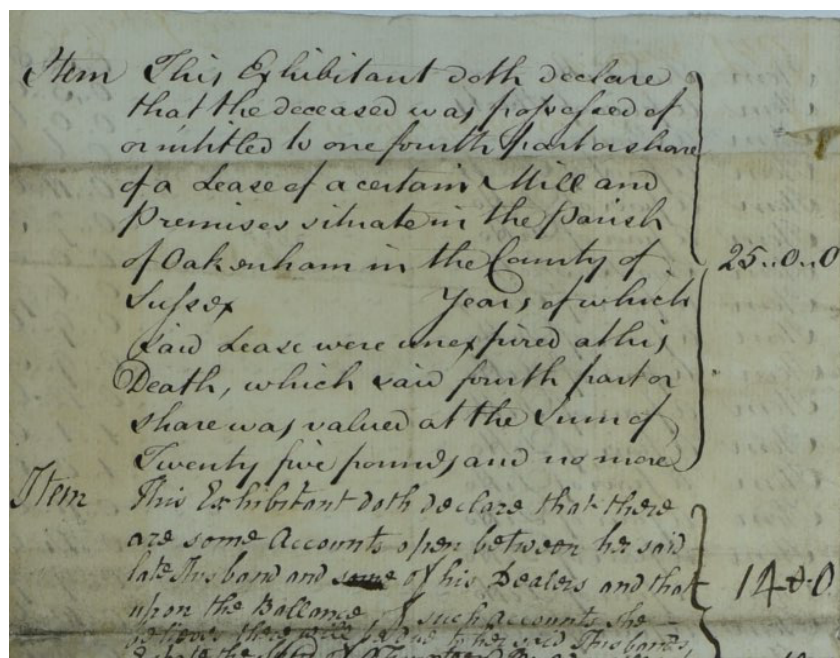 Item This Exhibitant doth declare
that the deceased was possessed of
or intitled to one fourth part or share
of a Lease of a certain Mill and
Premises situate in the parish
of Oakenham in the County of
Sussex Years of which
said Lease were unexpired at his
Death, which said fourth part or
share was valued at the Sum of
Twenty five pounds and no more
25..0..0
Item This Exhibitant doth declare that there
are some Accounts open between her said
late Husband and some of his Dealers and that
upon the Ballance of such Accounts she
believes there will be due to her said Husbands
14